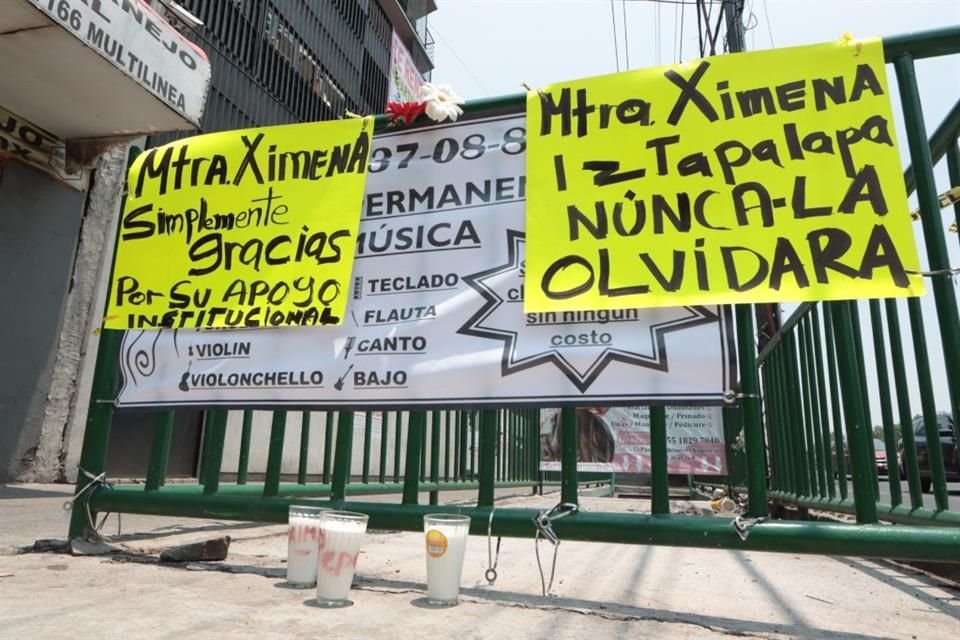 ALNEJO
166 MULTILINEA
Mtra. XIMENA
Simplemente
gracias
Por SU APOYO
INSTITUCIONAL
Mtra. XIMENA
IzTapalapa
NÚNCA-LA
OLVIDARA
37-08-8
PERMANEN
MÚSICA
TECLADO
FLAUTA
VIOLIN
CANTO
VIOLONCHELLO
BAJO
sin ningun
costo
55 1829 7840